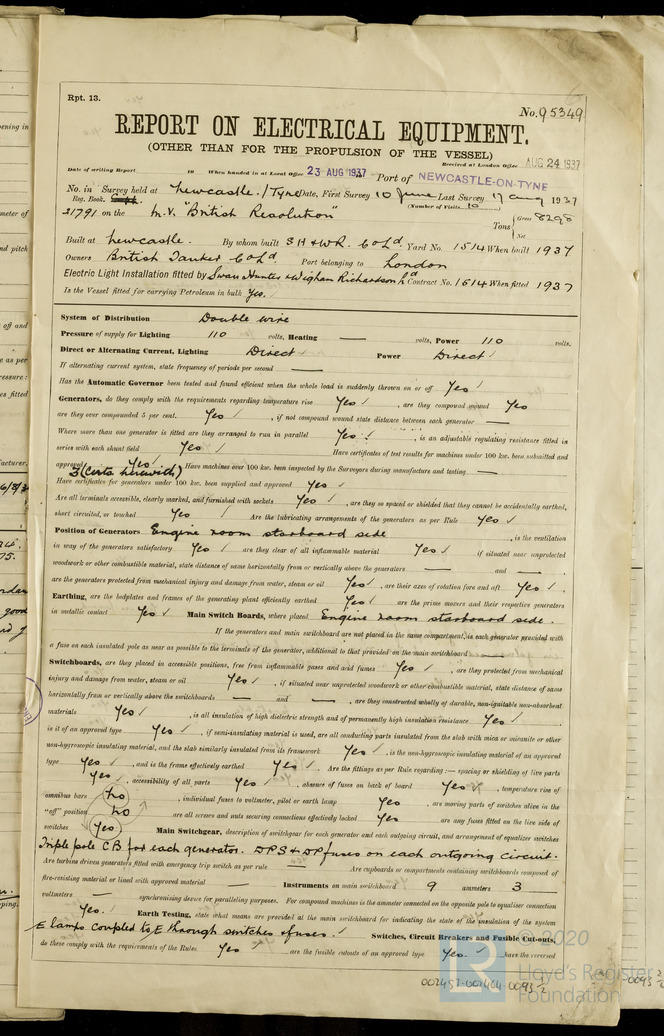 Rpt. 13.
No. 95349
REPORT ON ELECTRICAL EQUIPMENT.
(OTHER THAN FOR THE PROPULSION OF THE VESSEL)
Received at London Office AUG 24 1937
Date of writing Report 19 When handed in at Local Office 23 AUG 1937 Port of NEWCASTLE-ON-TYNE
No. in Survey held at Newcastle./Tyne Date, First Survey 10 June Last Survey 17 aug 1937
Reg. Book. (Number of Visits 10
31791 on the M.V. "British Resolution" Tons { Gross 8298
Net
Built at Newcastle. By whom built S H & W R. Co Ld. Yard No. 1514 When built 1937
Owners British Tanker Co Ld. Port belonging to London
Electric Light Installation fitted by Swan Hunter & Wigham Richardson Ld Contract No. 1514 When fitted 1937
Is the Vessel fitted for carrying Petroleum in bulk Yes.
System of Distribution Double wire
Pressure of supply for Lighting 110 volts, Heating — volts, Power 110 volts.
Direct or Alternating Current, Lighting Direct Power Direct
If alternating current system, state frequency of periods per second —
Has the Automatic Governor been tested and found efficient when the whole load is suddenly thrown on or off Yes
Generators, do they comply with the requirements regarding temperature rise Yes, are they compound wound Yes
are they over compounded 5 per cent. Yes, if not compound wound state distance between each generator —
Where more than one generator is fitted are they arranged to run in parallel Yes, is an adjustable regulating resistance fitted in
series with each shunt field Yes Have certificates of test results for machines under 100 kw. been submitted and
approved Yes Have machines over 100 kw. been inspected by the Surveyors during manufacture and testing —
3 (Certs herewith)
Have certificates for generators under 100 kw. been supplied and approved Yes
Are all terminals accessible, clearly marked, and furnished with sockets Yes, are they so spaced or shielded that they cannot be accidentally earthed,
short circuited, or touched Yes Are the lubricating arrangements of the generators as per Rule Yes
Position of Generators Engine room starboard side, is the ventilation
in way of the generators satisfactory Yes are they clear of all inflammable material Yes if situated near unprotected
woodwork or other combustible material, state distance of same horizontally from or vertically above the generators — and —,
are the generators protected from mechanical injury and damage from water, steam or oil Yes, are their axes of rotation fore and aft Yes.
Earthing, are the bedplates and frames of the generating plant efficiently earthed Yes are the prime movers and their respective generators
in metallic contact Yes Main Switch Boards, where placed Engine room starboard side.
If the generators and main switchboard are not placed in the same compartment, is each generator provided with
a fuse on each insulated pole as near as possible to the terminals of the generator, additional to that provided on the main switchboard —
Switchboards, are they placed in accessible positions, free from inflammable gases and acid fumes Yes, are they protected from mechanical
injury and damage from water, steam or oil Yes, if situated near unprotected woodwork or other combustible material, state distance of same
horizontally from or vertically above the switchboards — and —, are they constructed wholly of durable, non-ignitable non-absorbent
materials Yes, is all insulation of high dielectric strength and of permanently high insulation resistance Yes,
is it of an approved type Yes, if semi-insulating material is used, are all conducting parts insulated from the slab with mica or micanite or other
non-hygroscopic insulating material, and the slab similarly insulated from its framework Yes, is the non-hygroscopic insulating material of an approved
type Yes, and is the frame effectively earthed Yes. Are the fittings as per Rule regarding:— spacing or shielding of live parts
Yes, accessibility of all parts Yes, absence of fuses on back of board Yes, temperature rise of
omnibus bars No, individual fuses to voltmeter, pilot or earth lamp Yes, are moving parts of switches alive in the
"off" position No are all screws and nuts securing connections effectively locked Yes are any fuses fitted on the live side of
switches Yes Main Switchgear, description of switchgear for each generator and each outgoing circuit, and arrangement of equalizer switches
Triple pole CB for each generator. DPS & DP fuses on each outgoing circuit.
Are turbine driven generators fitted with emergency trip switch as per rule — Are cupboards or compartments containing switchboards composed of
fire-resisting material or lined with approved material — Instruments on main switchboard 9 ammeters 3
voltmeters — synchronising device for paralleling purposes. For compound machines is the ammeter connected on the opposite pole to equaliser connection
Yes. Earth Testing, state what means are provided at the main switchboard for indicating the state of the insulation of the system
E lamps coupled to E through switches & fuses. Switches, Circuit Breakers and Fusible Cut-outs,
do these comply with the requirements of the Rules Yes are the fusible cutouts of an approved type Yes. have the reversed
© 2020
Lloyd's Register
Foundation
002457-002464-0093 1/2